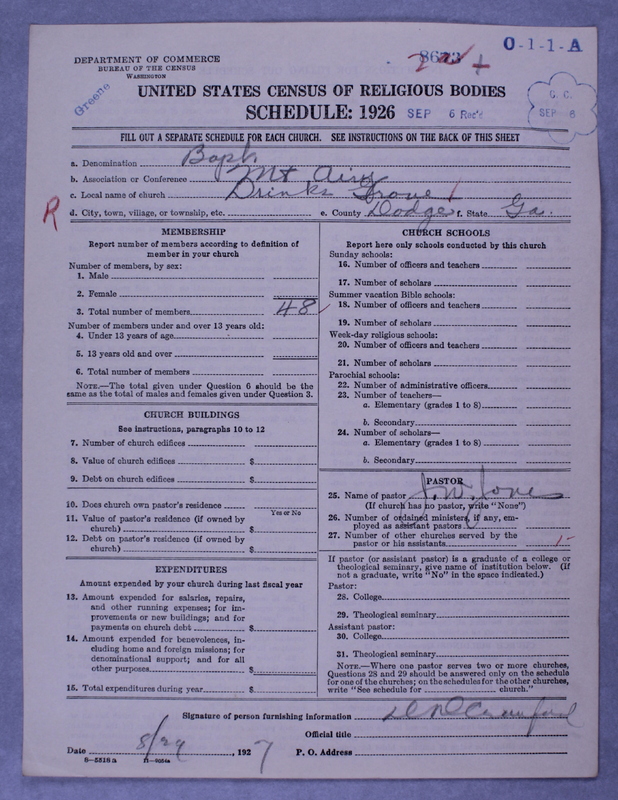 O-1-1-A
DEPARTMENT OF COMMERCE
BUREAU OF THE CENSUS
WASHINGTON
Greene
UNITED STATES CENSUS OF RELIGIOUS BODIES
SCHEDULE: 1926 SEP 6 Rec'd
G. C.
SEP 6
FILL OUT A SEPARATE SCHEDULE FOR EACH CHURCH. SEE INSTRUCTIONS ON THE BACK OF THIS SHEET
a. Denomination Bapt.
b. Association or Conference Mt Airy
c. Local name of church Drinks Grove
R
d. City, town, village, or township, etc. e. County Dodge f. State Ga.
MEMBERSHIP
Report number of members according to definition of
member in your church
Number of members, by sex:
1. Male
2. Female
3. Total number of members 48
Number of members under and over 13 years old:
4. Under 13 years of age
5. 13 years old and over
6. Total number of members
NOTE.—The total given under Question 6 should be the
same as the total of males and females given under Question 3.
CHURCH BUILDINGS
See instructions, paragraphs 10 to 12
7. Number of church edifices
8. Value of church edifices $
9. Debt on church edifices $
10. Does church own pastor's residence?
Yes or No
11. Value of pastor's residence (if owned by
church) $
12. Debt on pastor's residence (if owned by
church) $
EXPENDITURES
Amount expended by your church during last fiscal year
13. Amount expended for salaries, repairs,
and other running expenses; for im-
provements or new buildings; and for
payments on church debt $
14. Amount expended for benevolences, in-
cluding home and foreign missions; for
denominational support; and for all
other purposes $
15. Total expenditures during year $
CHURCH SCHOOLS
Report here only schools conducted by this church
Sunday schools:
16. Number of officers and teachers
17. Number of scholars
Summer vacation Bible schools:
18. Number of officers and teachers
19. Number of scholars
Week-day religious schools:
20. Number of officers and teachers
21. Number of scholars
Parochial schools:
22. Number of administrative officers
23. Number of teachers—
a. Elementary (grades 1 to 8)
b. Secondary
24. Number of scholars—
a. Elementary (grades 1 to 8)
b. Secondary
PASTOR
25. Name of pastor J. W. Jones
(If church has no pastor, write "None")
26. Number of ordained ministers, if any, em-
ployed as assistant pastors
27. Number of other churches served by the
pastor or his assistants
If pastor (or assistant pastor) is a graduate of a college or
theological seminary, give name of institution below. (If
not a graduate, write "No" in the space indicated.)
Pastor:
28. College
29. Theological seminary
Assistant pastor:
30. College
31. Theological seminary
NOTE.—Where one pastor serves two or more churches,
Questions 28 and 29 should be answered only on the schedule
for one of the churches; on the schedules for the other churches,
write "See schedule for church."
Signature of person furnishing information Crawford
Official title
Date 8/29, 1927 P. O. Address
8—5518a